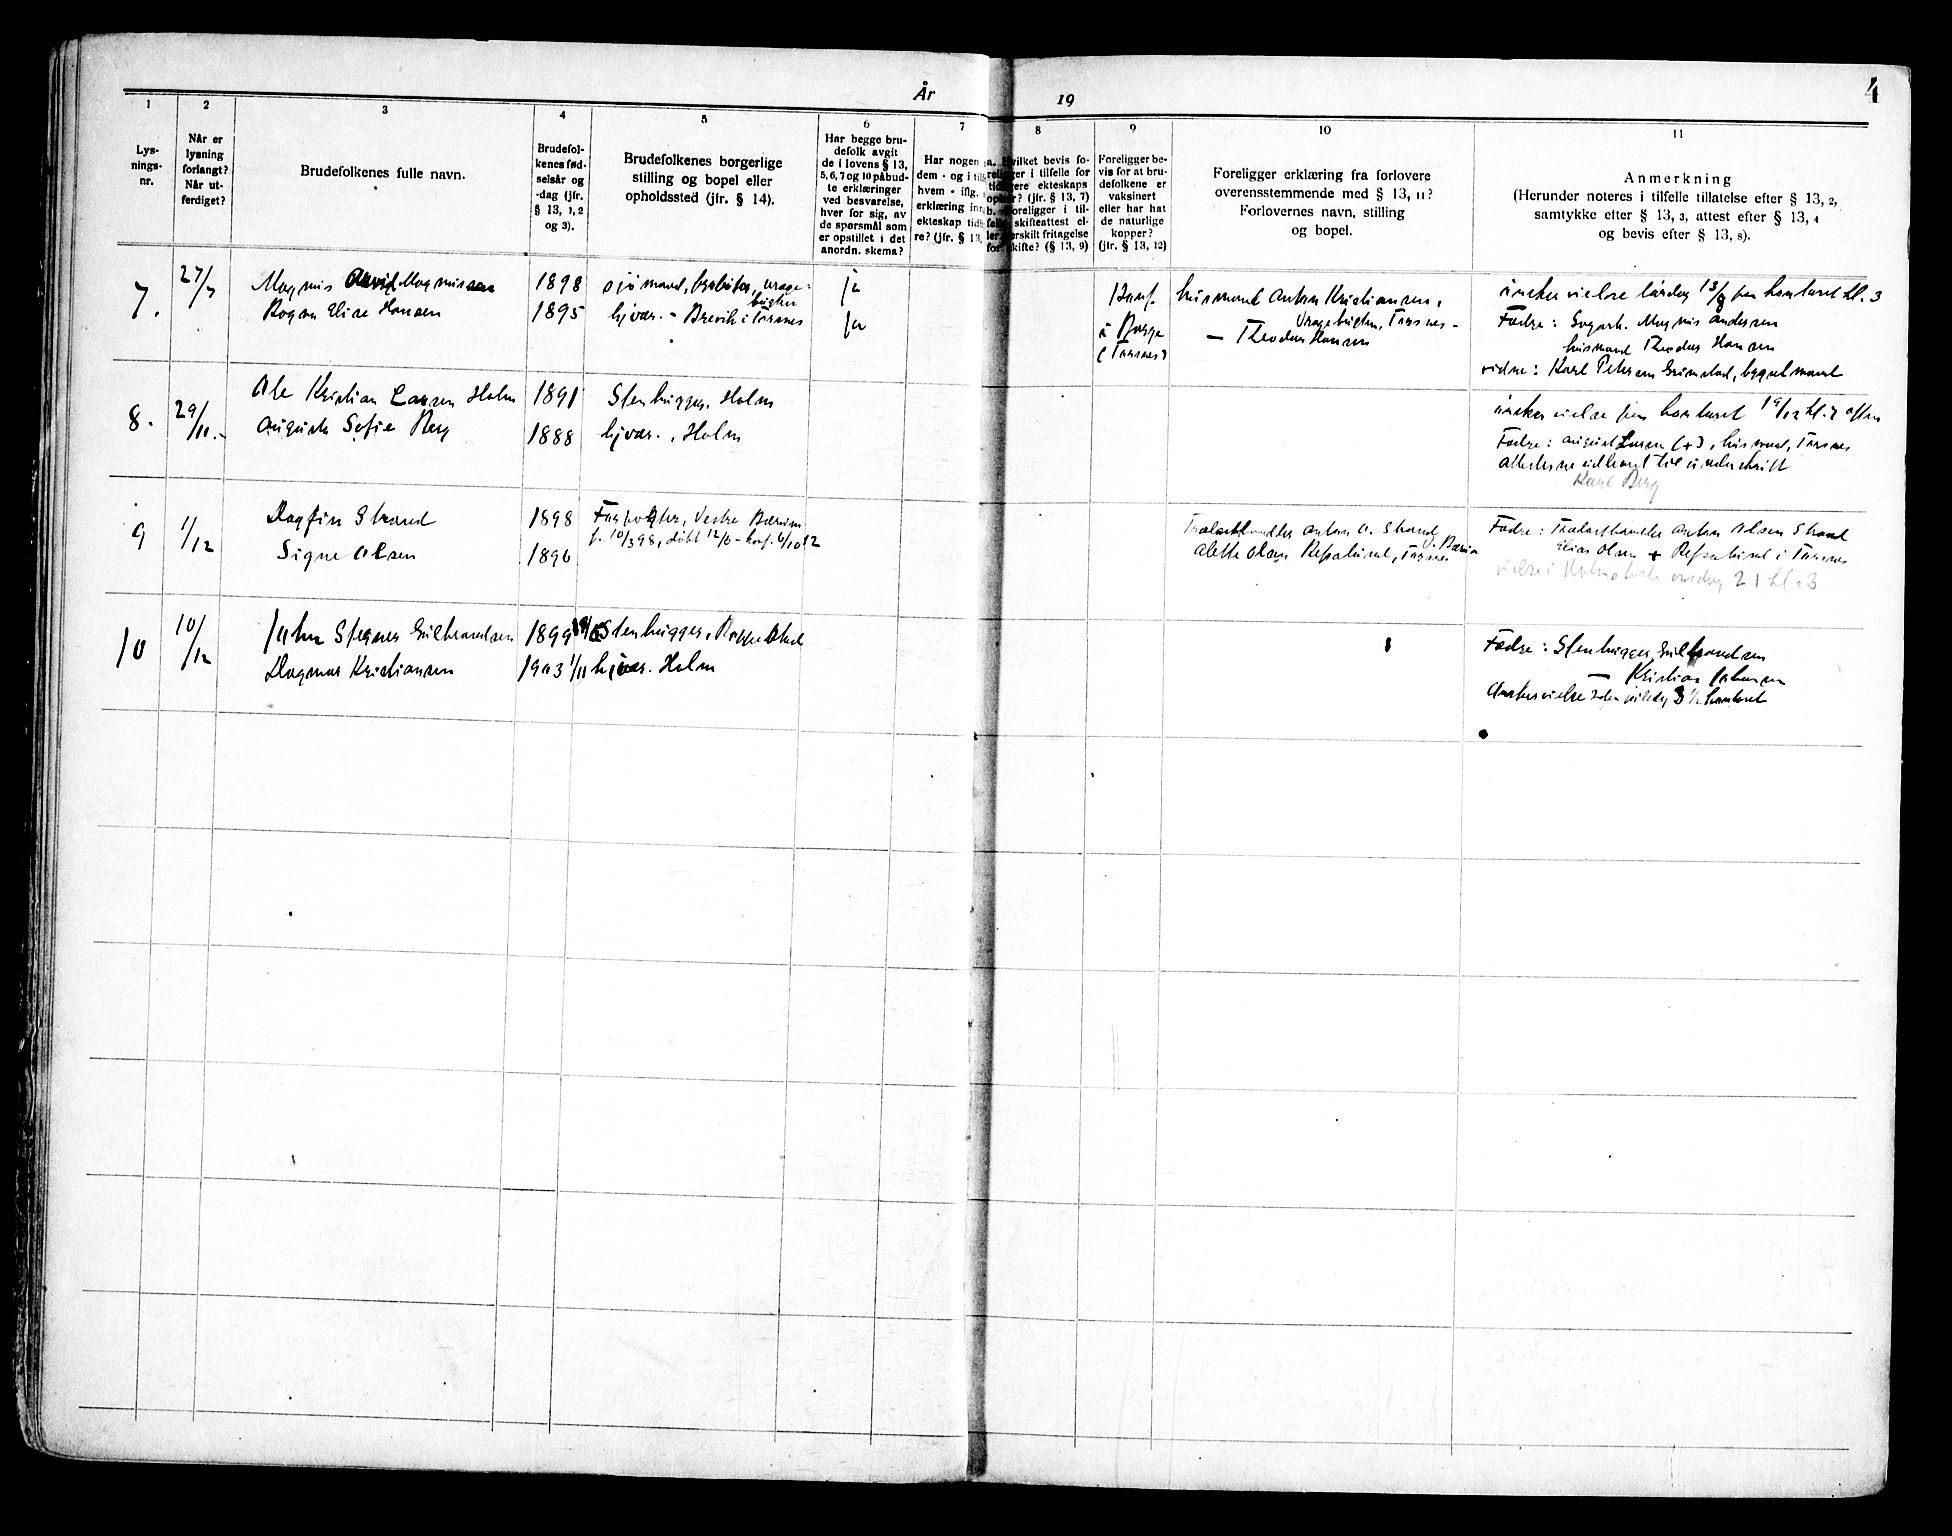 År
19
4
1
2
3
4
5
6
7
8
9
10
11
Lys-
nings-
nr.
Når er
lysning
forlangt?
Når ut-
ferdiget?
Brudefolkenes fulle navn.
Brudefol-
kenes fød-
selsår og
-dag (jfr.
§ 13, 1, 2
og 3).
Brudefolkenes borgerlige
stilling og bopel eller
opholdssted (jfr. § 14).
Har begge bru-
defolk avgit
de i lovens § 13,
5, 6, 7 og 10 påbud-
te erklæringer
ved besvarelse,
hver for sig, av
de spørsmål som
er opstillet i det
anordn. skema?
Har nogen
dem - og i
hvem - iflg.
erklæring
ekteskap
re? (jfr. § 13,
Hvilket bevis fo-
religger i tilfelle for
tidligere ekteskaps
ophør? (jfr. § 13, 7)
b. Foreligger i til-
felle skifteattest el-
ler særskilt fritagelse
for skifte? (§ 13, 9)
Foreligger be-
vis for at bru-
defolkene er
vaksinert
eller har hat
de naturlige
kopper?
(jfr. § 13, 12)
Foreligger erklæring fra forlovere
overensstemmende med § 13, 11?
Forlovernes navn, stilling
og bopel.
Anmerkning
(Herunder noteres i tilfelle tillatelse efter § 13, 2,
samtykke efter § 13, 3, attest efter § 13, 4
og bevis efter § 13, 8).
7.
27/7
Magnus Magnussen
Ragna Elise Hansen
1898
1895
sjømand,
hjvær. - Brevik i Torsnes
ja
ja
Konf.
i Borge
(Torsnes)
husmand Anton Kristiansen,
Torsnes -
— Theodor Hansen
ønsker vielse lørdag 13/8 paa kontoret kl. 3
Fædre: Magnus Andersen
husmand Theodor Hansen
vidne: Karl Petersen
8.
29/11.-
Ole Kristian Larsen Holm
Augusta Sofie Berg
1891
1888
Stenhugger, Holm
hjvær., Holm
ønsker vielse paa kontoret 19/12 kl. 7 aften
Fædre: August Larsen (+), husmand, Torsnes
til underskrift
Karl Berg
9
1/12
Dagfin Strand
Signe Olsen
1898
1896
Vestre Bærum
f. 10/3 98, døbt 12/6 - konf. 6/10 12
Trælasthandler Anton O. Strand, V. Bærum
Alette Olsen Torsnes
Fædre: Trælasthandler Anton Olsen Strand
Elias Olsen + i Torsnes
vielse i onsdag 21 kl. 3
10
10/12
John Gulbrandsen
Dagmar Kristiansen
1899
1903 1/11
Stenhugger,
hjvær. Holm
Fædre: Stenhugger Gulbrandsen
— Kristian Johansen
Ønsker vielse 2den juledag 3 1/2 kontoret